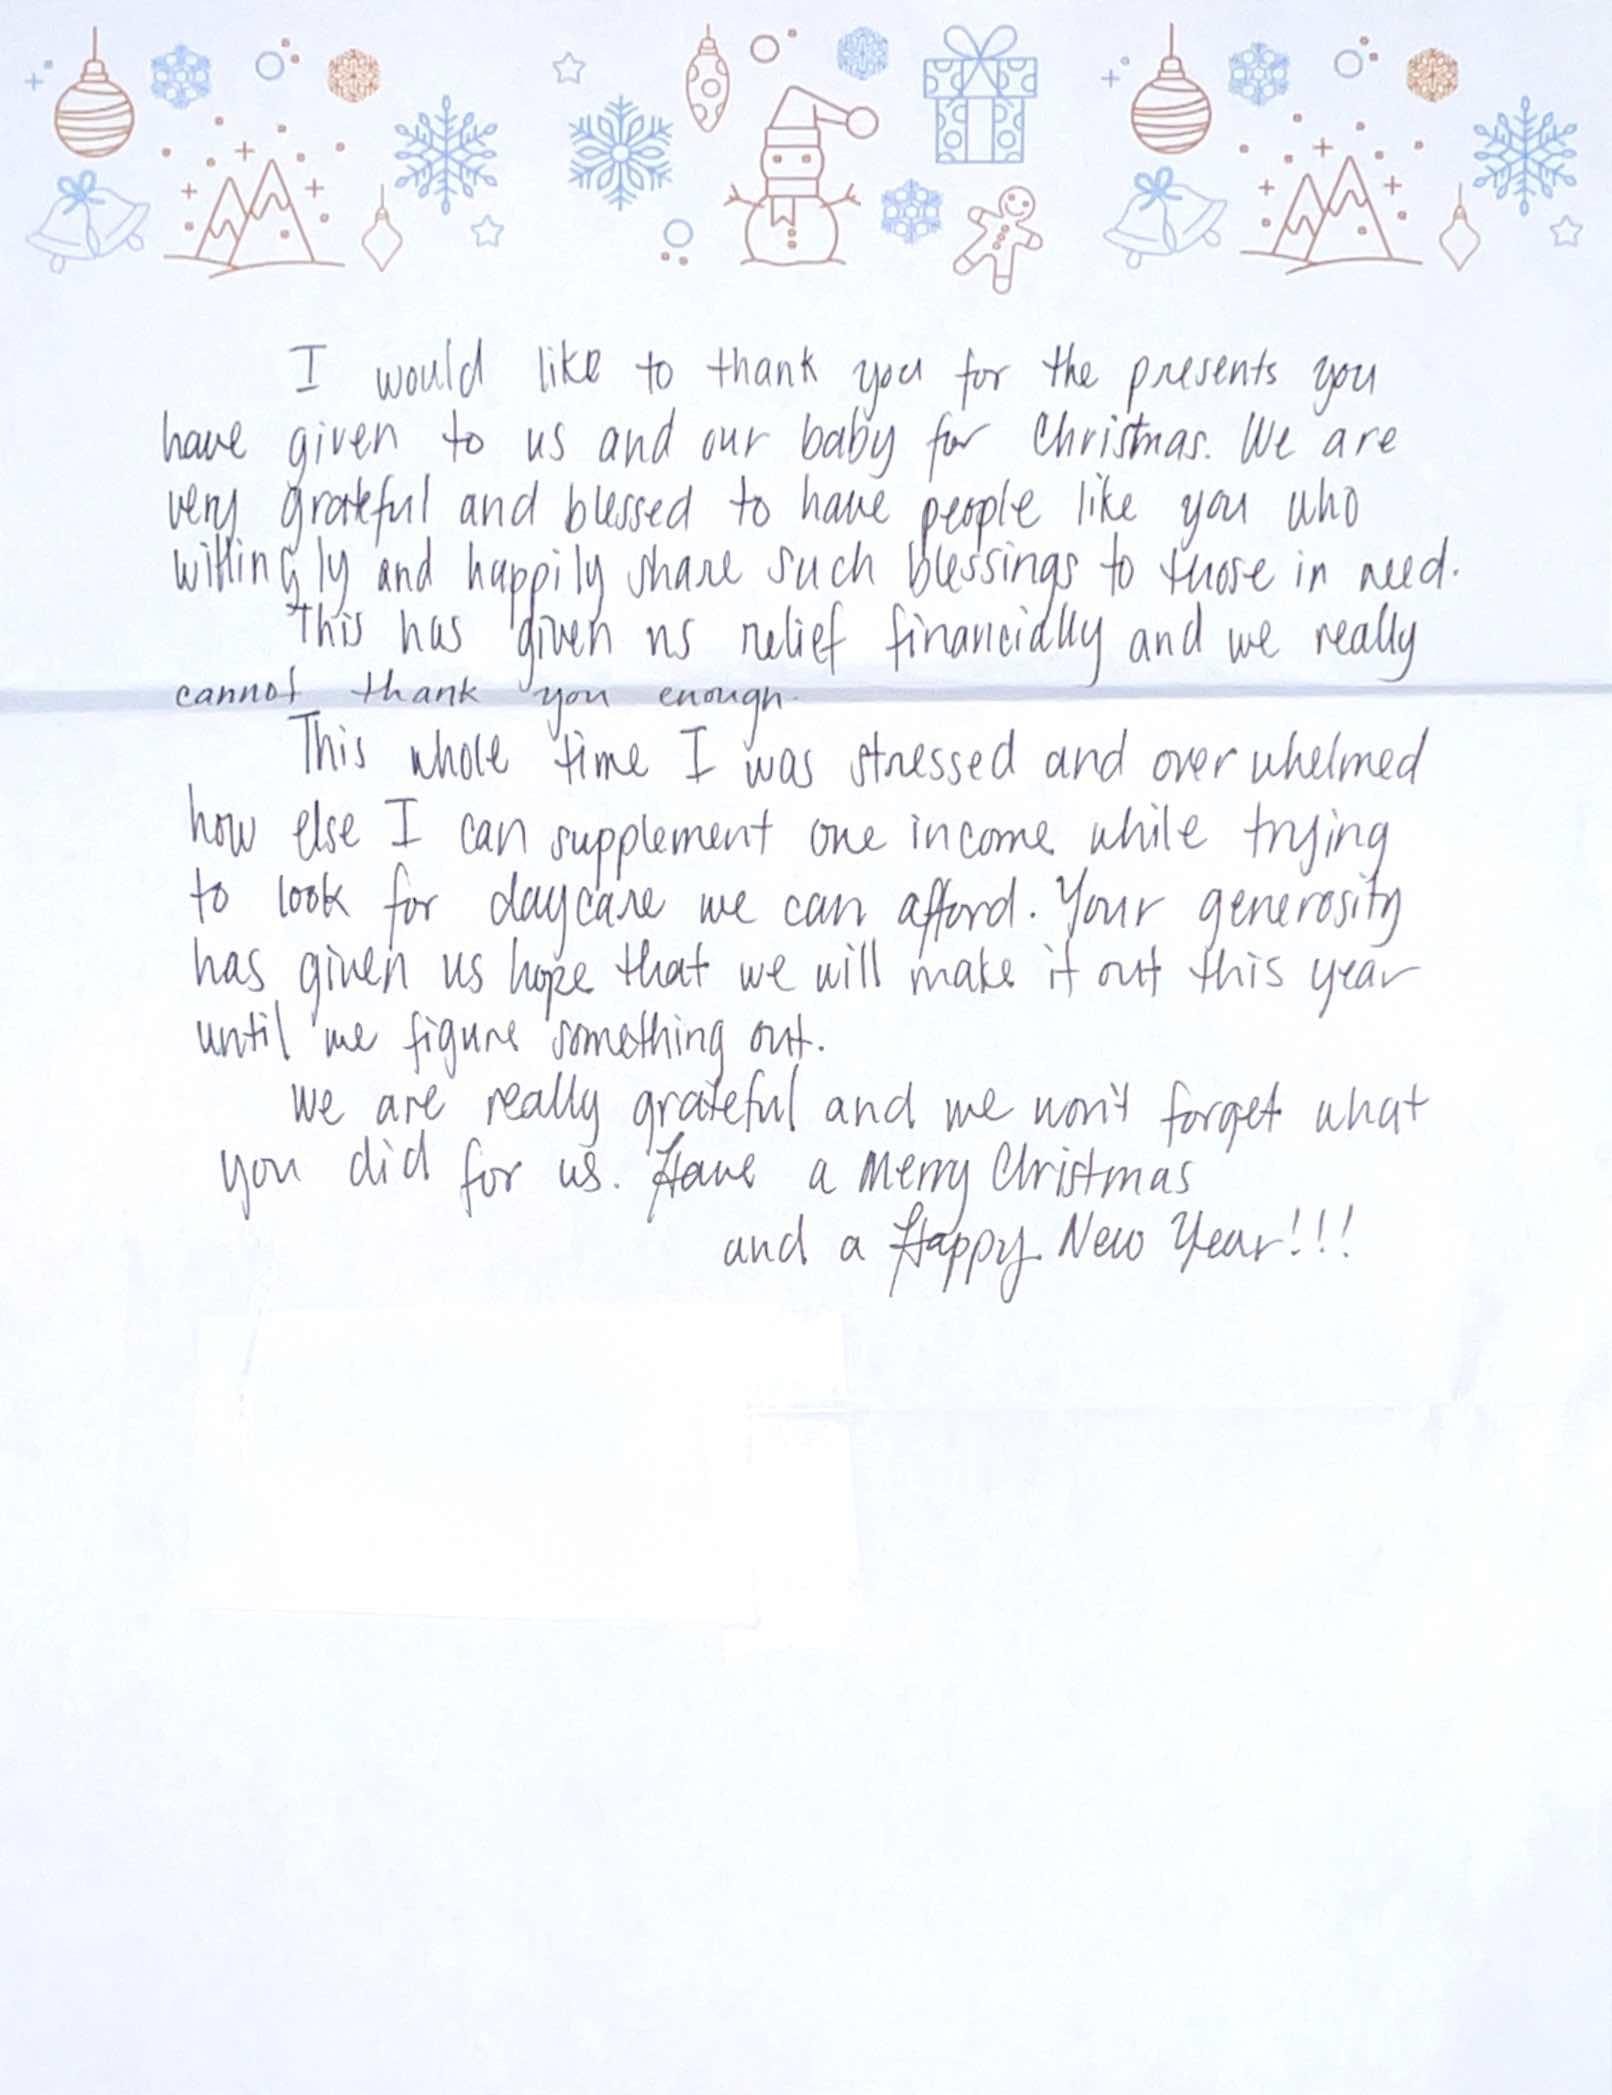 I would like to thank you for the presents you
have given to us and our baby for Christmas. We are
very grateful and blessed to have people like you who
willingly and happily share such blessings to those in need.
This has given us relief financially and we really
cannot thank you enough.
This whole time I was stressed and overwhelmed
how else I can supplement one income while trying
to look for daycare we can afford. Your generosity
has given us hope that we will make it out this year
until we figure something out.
We are really grateful and we won't forget what
you did for us. Have a Merry Christmas
and a Happy New Year!!!